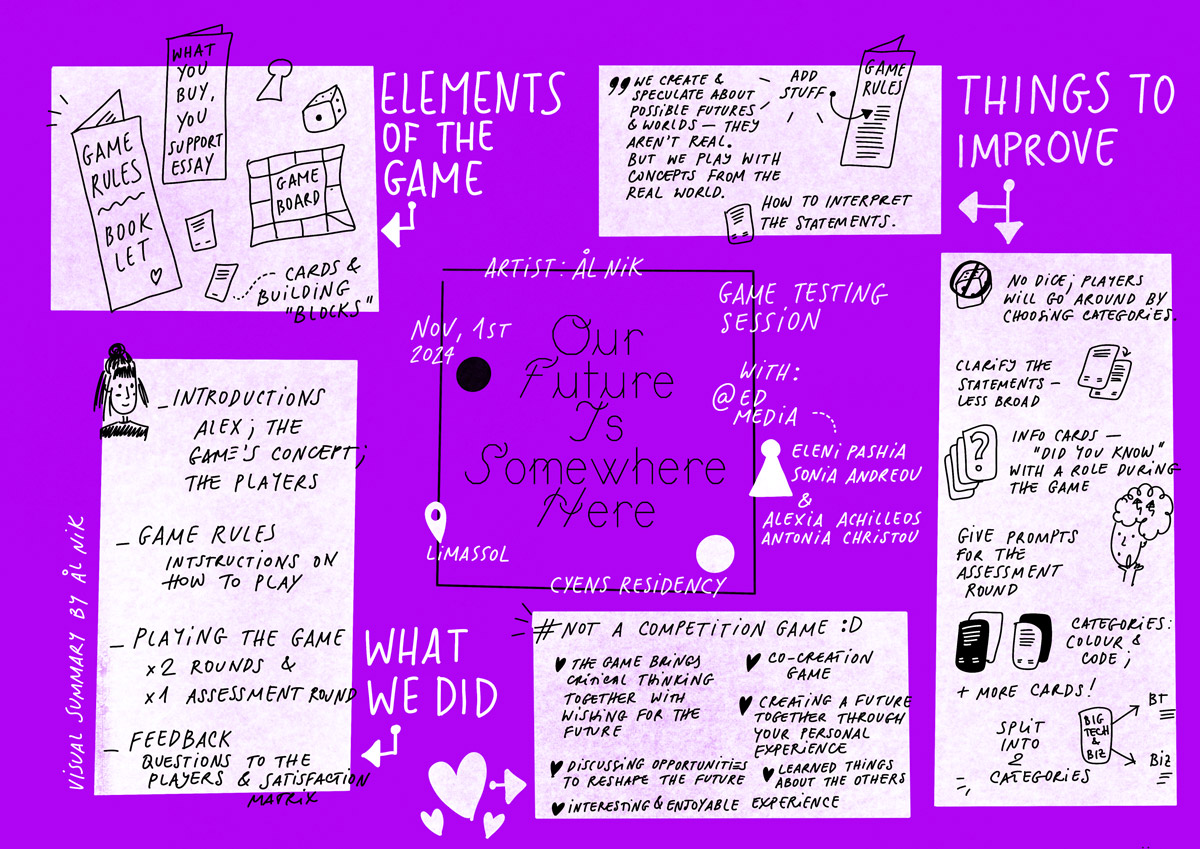 WHAT
YOU
BUY,
YOU
SUPPORT
ESSAY
GAME
RULES
BOOK
LET
GAME
BOARD
CARDS &
BUILDING
"BLOCKS"
ELEMENTS
OF THE
GAME
" WE CREATE &
SPECULATE ABOUT
POSSIBLE FUTURES
& WORLDS — THEY
AREN'T REAL.
BUT WE PLAY WITH
CONCEPTS FROM THE
REAL WORLD.
ADD
STUFF
GAME
RULES
HOW TO INTERPRET
THE STATEMENTS.
THINGS TO
IMPROVE
ARTIST: ÅL NIK
NOV, 1ST
2024
Our
Future
Is
Somewhere
Here
GAME TESTING
SESSION
WITH:
@ED
MEDIA
ELENI PASHIA
SONIA ANDREOU
&
ALEXIA ACHILLEOS
ANTONIA CHRISTOU
LIMASSOL
CYENS RESIDENCY
NO DICE; PLAYERS
WILL GO AROUND BY
CHOOSING CATEGORIES.
CLARIFY THE
STATEMENTS –
LESS BROAD
?
INFO CARDS —
"DID YOU KNOW"
WITH A ROLE DURING
THE GAME
GIVE PROMPTS
FOR THE
ASSESSMENT
ROUND
CATEGORIES:
COLOUR &
CODE;
+ MORE CARDS!
SPLIT
INTO
2
CATEGORIES
BIG
TECH
&
BIZ
BT
BIZ
– INTRODUCTIONS
ALEX; THE
GAME'S CONCEPT;
THE PLAYERS
– GAME RULES
INTSTRUCTIONS ON
HOW TO PLAY
– PLAYING THE GAME
x2 ROUNDS &
x1 ASSESSMENT ROUND
– FEEDBACK
QUESTIONS TO THE
PLAYERS & SATISFACTION
MATRIX
VISUAL SUMMARY BY ÅL NIK
WHAT
WE DID
#NOT A COMPETITION GAME :D
THE GAME BRINGS
CRITICAL THINKING
TOGETHER WITH
WISHING FOR THE
FUTURE
DISCUSSING OPPORTUNITIES
TO RESHAPE THE FUTURE
INTERESTING & ENJOYABLE EXPERIENCE
CO-CREATION
GAME
CREATING A FUTURE
TOGETHER THROUGH
YOUR PERSONAL
EXPERIENCE
LEARNED THINGS
ABOUT THE OTHERS